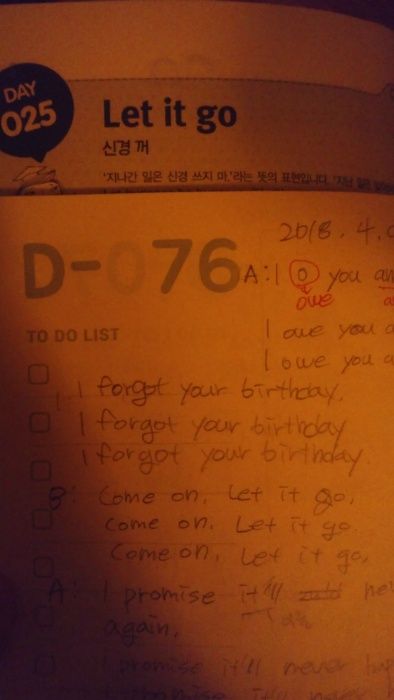 DAY
025
Let it go
신경 꺼
'지나간 일은 신경 쓰지 마.'라는 뜻의 표현입니다. '지난 일은
D-076
2018. 4.
TO DO LIST
A: I o you an
owe
I owe you a
I owe you a
I forgot your birthday.
I forgot your birthday
I forgot your birthday.
B: Come on. Let it go.
come on. Let it go.
Come on, Let it go.
A: I promise it'll ne
again.
I promise it'll never hap
I promise it'll never